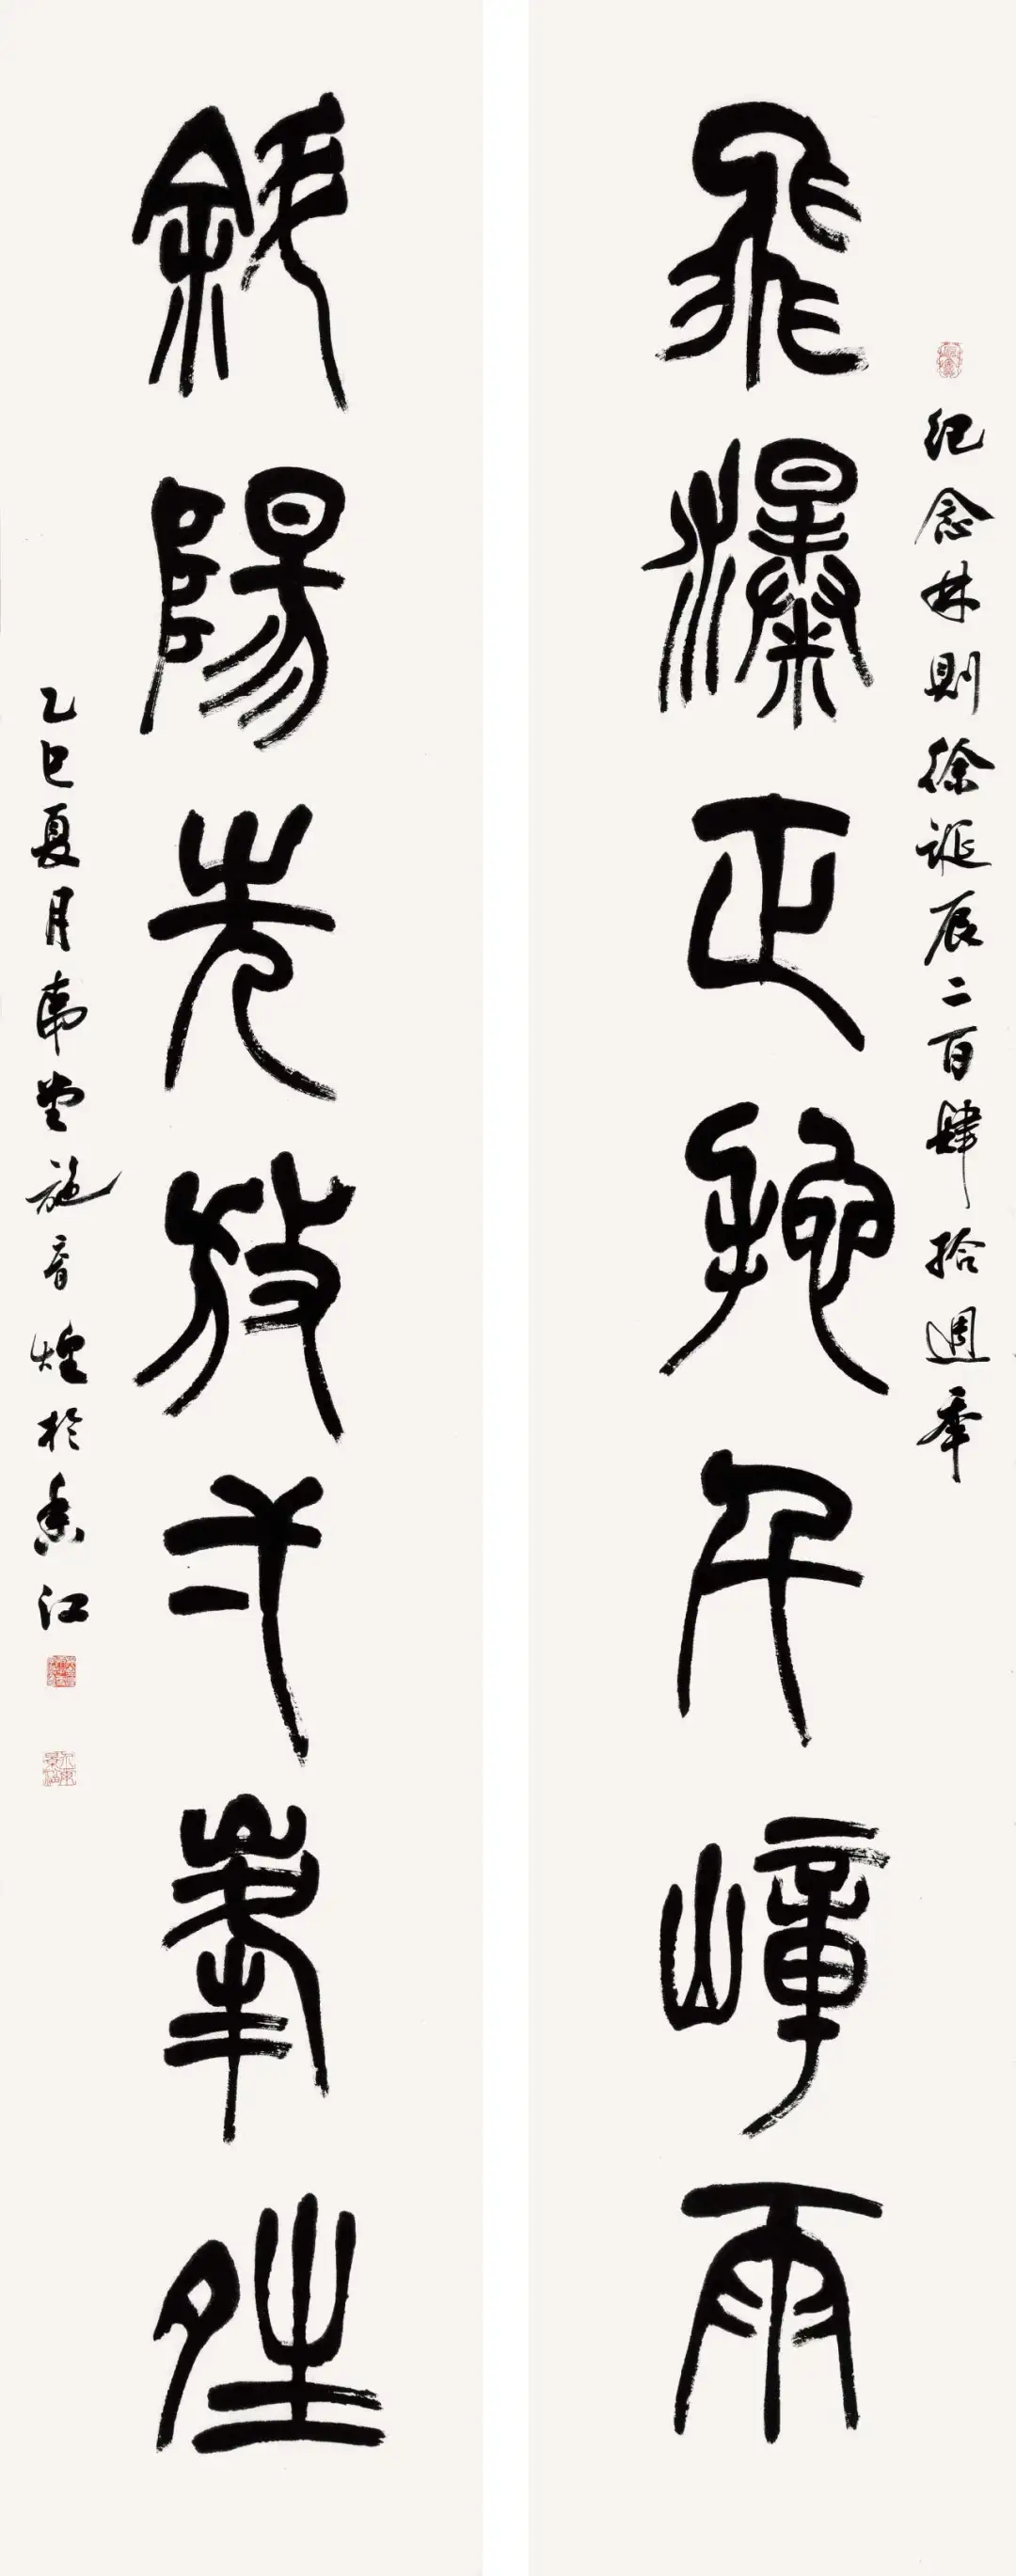 紀念林則徐誕辰二百肆拾週年
飛瀑正拖千嶂雨
斜陽先放弌峯夝
乙巳夏月南堂施煌於香江